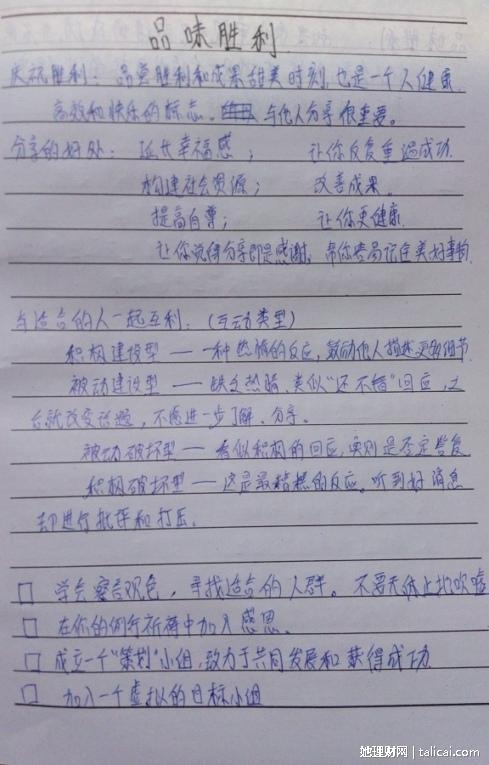 品味胜利
庆祝胜利：品尝胜利和成果甜美时刻，也是一个人健康
高效和快乐的标志。与他人分享很重要。
分享的好处：延长幸福感；让你反复重温成功.
构建社会资源；改善成果.
提高自尊；让你更健康.
让你觉得分享即是感谢，帮你容易记住美好事物.
与适合的人一起互利：(互动类型)
积极建设型——一种热情的反应，鼓励他人描述更多细节.
被动建设型——缺乏热情.类似“还不错”回应，之
后就改变话题，不愿进一步了解、分享。
被动破坏型——看似积极的回应，实则是否定答复
积极破坏型——这是最糟糕的反应。听到好消息
却进行批评和打压.
□ 学会察言观色，寻找适合的人群。不要无休止地吹嘘
□ 在你的例行祈祷中加入感恩。
□ 成立一个“策划”小组，致力于共同发展和获得成功
□ 加入一个虚拟的目标小组
她理财网 | talicai.com